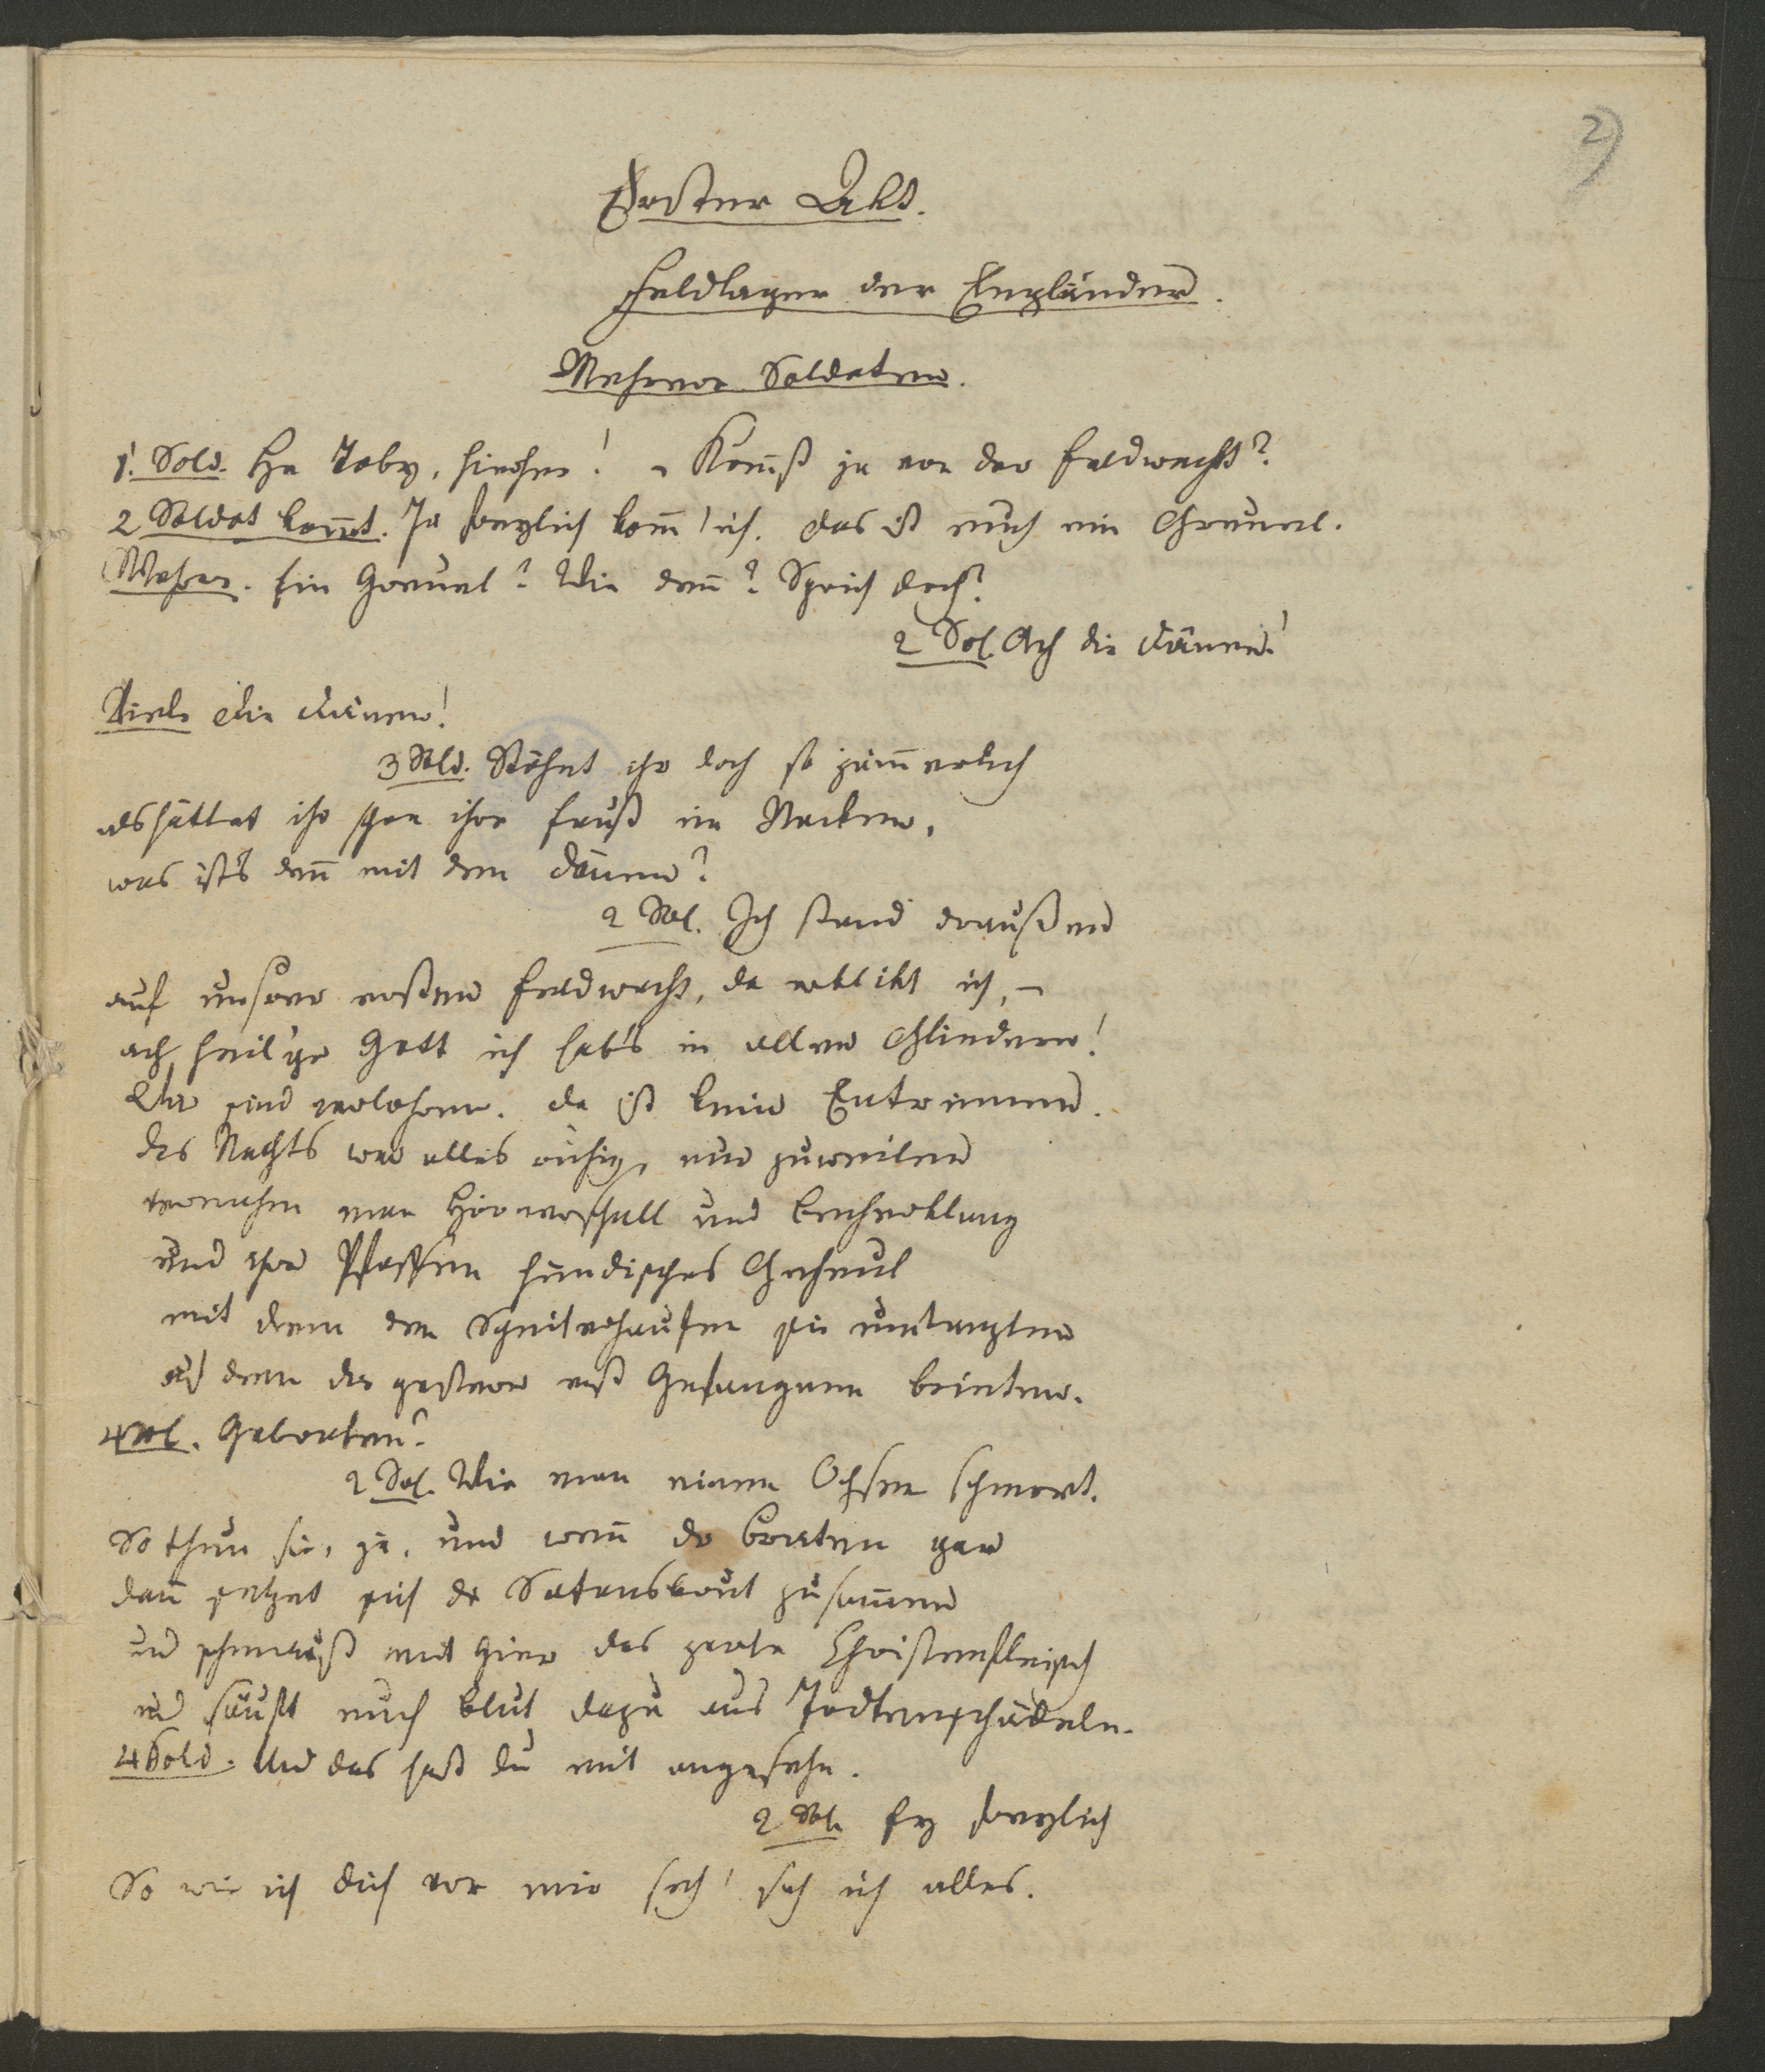 2)
Erster Akt.
Feldlager der Engländer.
Mehrere Soldaten.
1. Sold. He Toby, hierher! Komst ja von der Feldwacht?
2 Soldat kom̄t. Ja freylich kom̄' ich. das ist euch ein Greuel.
Mehrer. Ein Greuel? Wie den̄? Sprich doch?
2 Sol. Ach die Dänen!
Viele Die Dänen!
3 Sold. Stöhnt ihr doch so jäm̄erlich
als hättet ihr schon ihre Faust im Nacken,
was ists den̄ mit den Dänen?
2 Sol. Ich stand draußen
auf unsrer ersten Feldwacht, da erblikt ich, –
ach heil'ger Gott ich hab's in allen Gliedern!
Wir sind verlohren. da ist kein Entrinnen.
des Nachts war alles ruhig, nur zuweilen
vernahm man Hörnerschall und
und ihrer Pfaffen hündisches Geheul
mit dem den Scheiterhaufen sie umtanzten
auf dem die gestern erst Gefangnen brieten.
4 Sol. Gebraten?
2 Sol. Wie man einen Ochsen schmort.
So thun sie, ja, und wen̄ der Braten gar
dan̄ setzet sich die Satansbrut zusammen
und schmaußt mit Gier das zarte Christenfleisch
und säuft euch Blut dazu aus Todtenschädeln.
4 Sold. Und das hast du mit angesehn.
2 Sol. Ey freylich
So wie ich dich vor mir seh' sah ich alles.